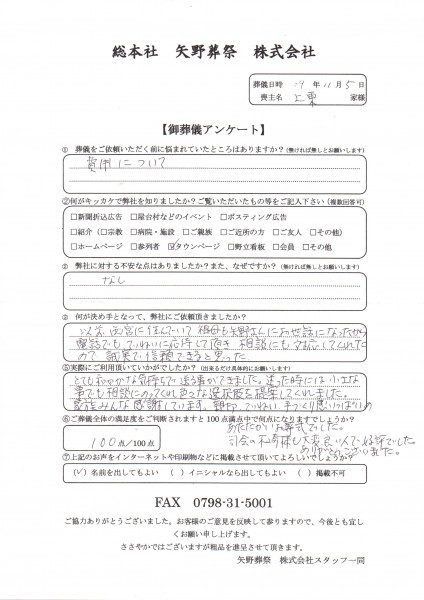 総本社 矢野葬祭 株式会社
葬儀日時 29年11月5日
喪主名 上東 家様
【御葬儀アンケート】
① 葬儀をご依頼いただく前に悩まれていたところはありますか？(無ければ無しとお願いします)
費用について
②何がキッカケで弊社を知りましたか？ご覧いただいたもの等をご記入下さい(複数回答可)
□新聞折込広告 □屋台村などのイベント □ポスティング広告
□紹介(□宗教 □病院・施設 □ご親族 □ご近所の方 □ご友人 □その他)
□ホームページ □参列者 ☑タウンページ □野立看板 □会員 □その他
③ 弊社に対する不安な点はありましたか？また、なぜですか？(無ければ無しとお願いします)
なし
③ 何が決め手となって、弊社にご依頼頂きましたか？
以前西宮に住んでいて祖母も矢野さんにお世話になったから
電話でもていねいに応対して頂き 相談にも対応してくれた
ので 誠実で信頼できると思った
⑤実際にご利用頂いていかがでしたか？(出来るだけ具体的にお願いします)
とてもおだやかな気持ちで送る事ができました。迷った時には小さな
事でも相談にのってくれ色々な選択肢を提案してくれました。
家族みんな感謝しています。親切、ていねい、手づくり感いっぱいの
あたたかいお葬式でした。
⑥ご葬儀全体の満足度をご判断されますと100点満点中で何点になりますでしょうか？
100点/100点
司会の
大変良いんで好評でした
ありがとうございました。
⑦上記のお声をインターネットや印刷物などに掲載させて頂いてよろしいでしょうか？
(✓)名前を出してもよい ( )イニシャルなら出してもよい ( )掲載不可
FAX 0798-31-5001
ご協力ありがとうございました。お客様のご意見を反映して参りますので、今後とも宜し
くお願い申し上げます。
ささやかではございますが粗品を進呈させて頂きます。
矢野葬祭 株式会社スタッフ一同